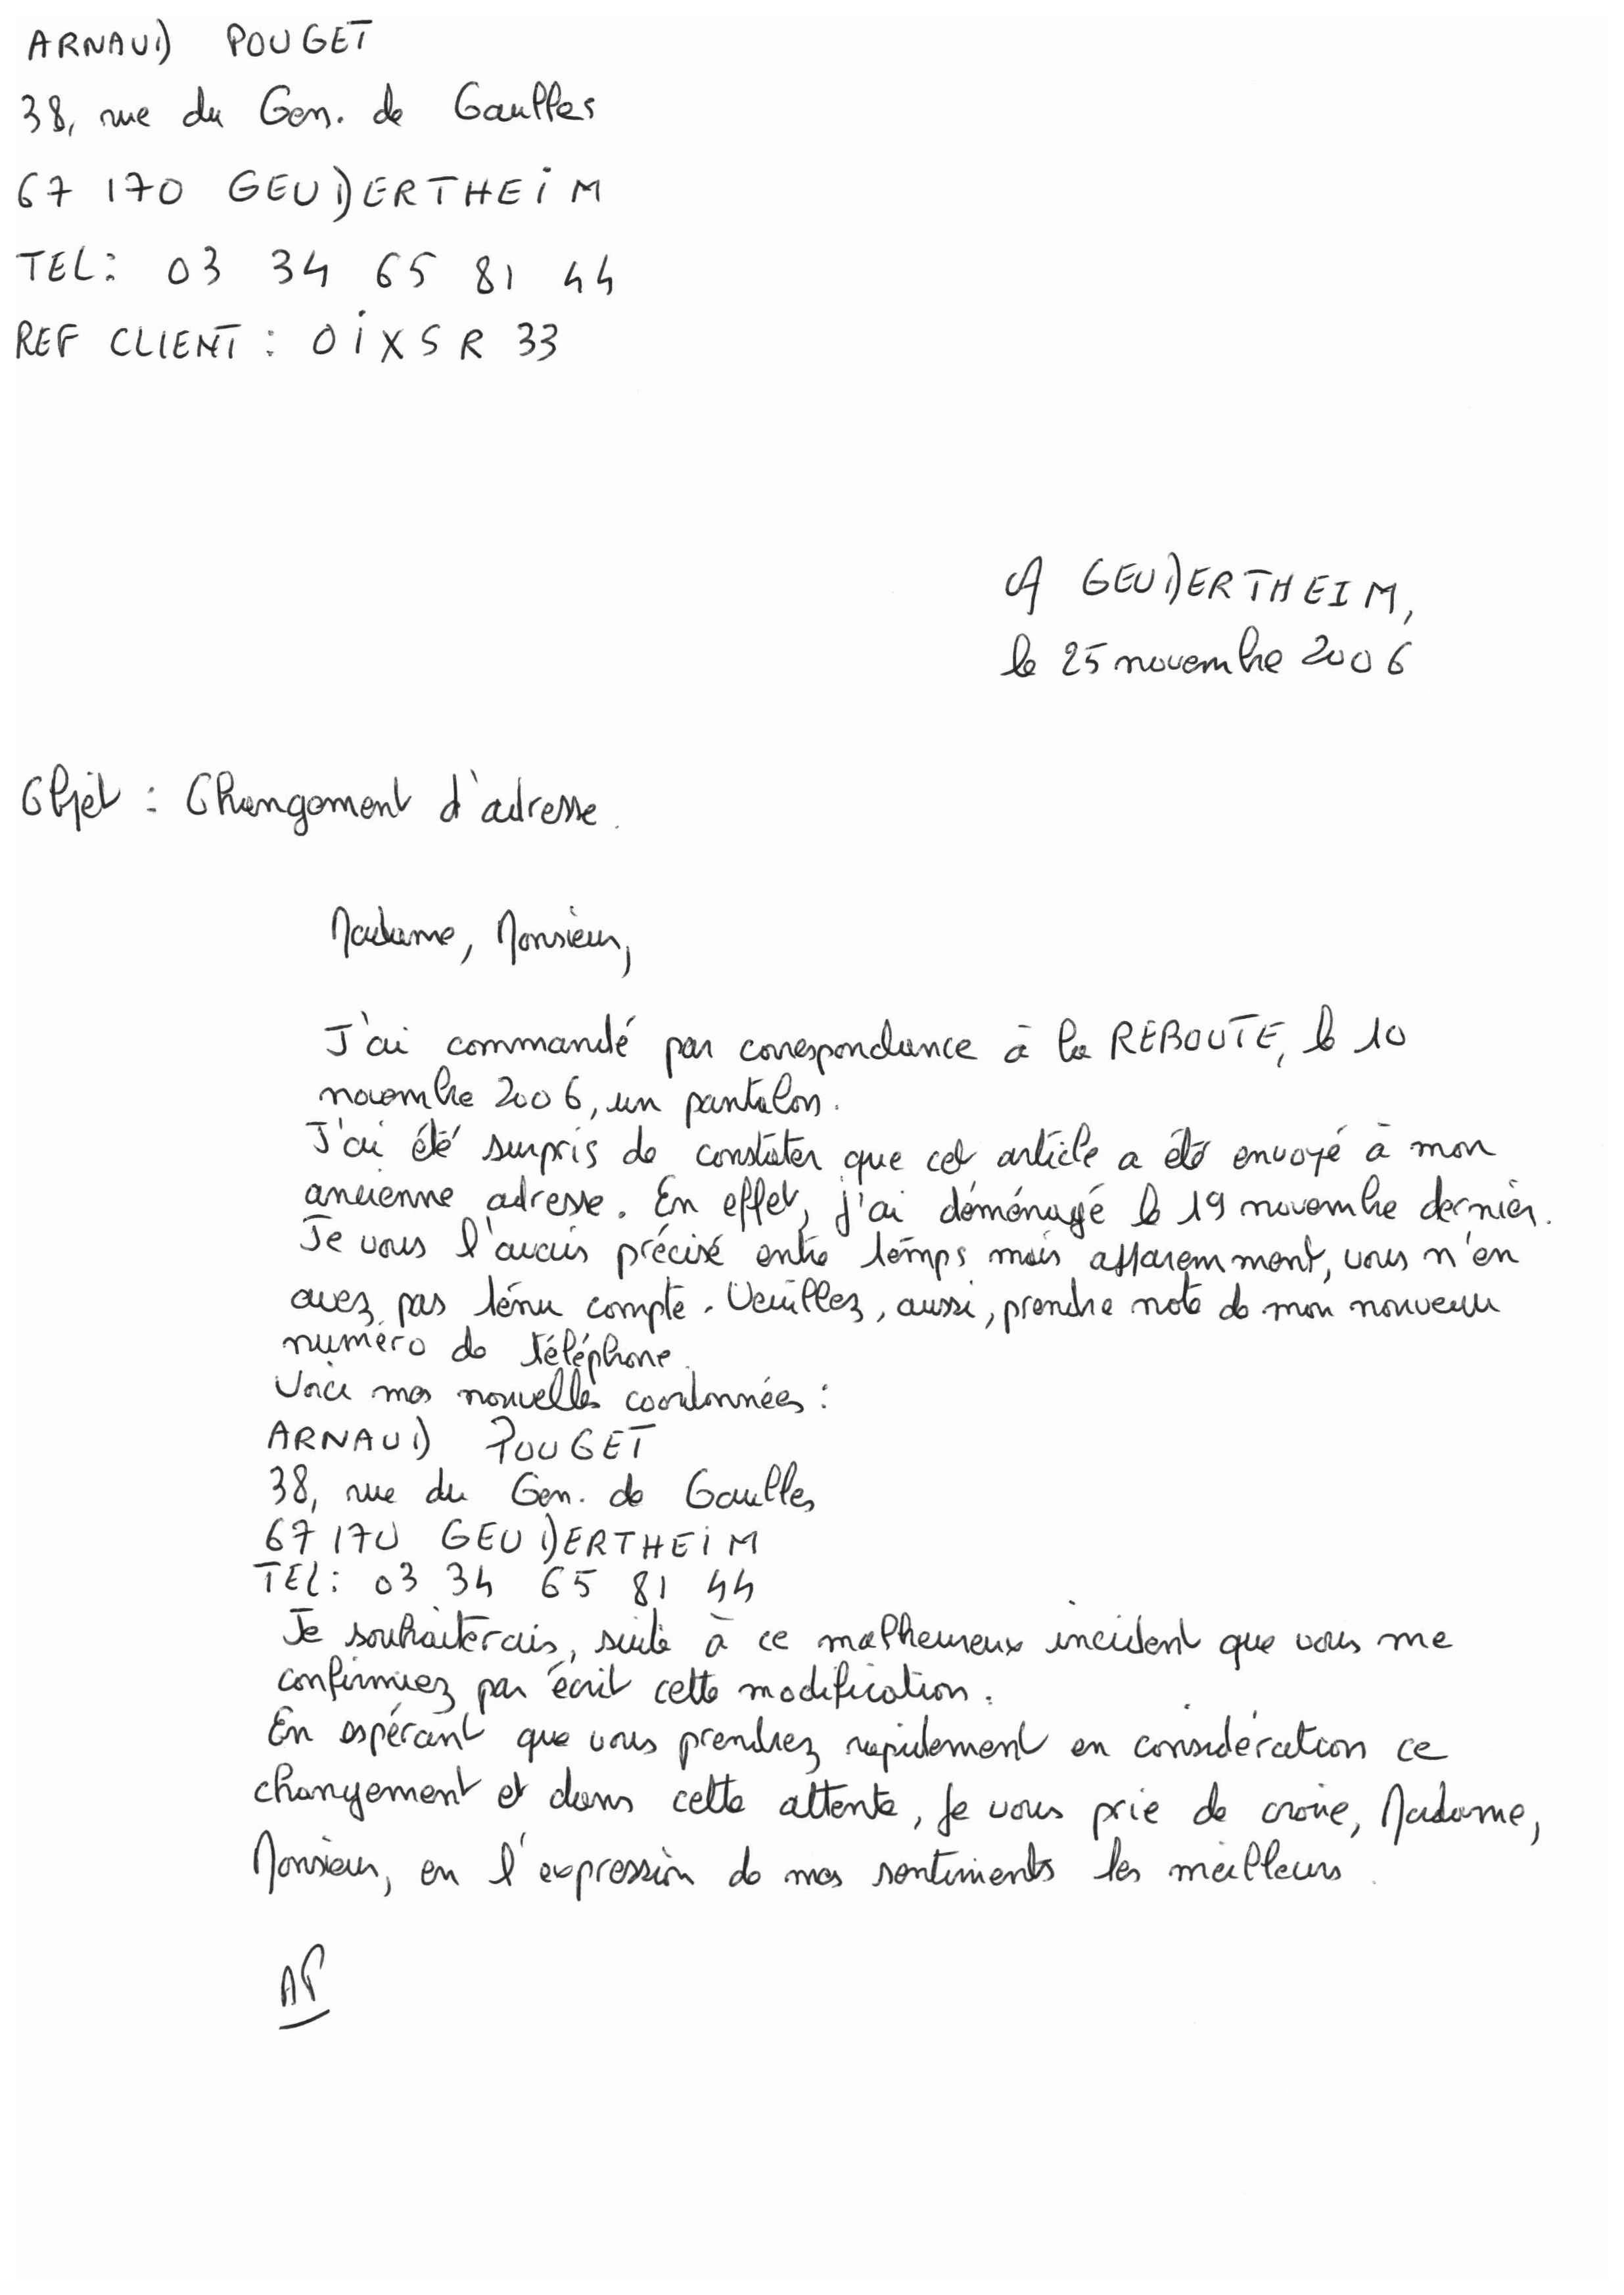 ARNAUD POUGET
38, rue du Gen. de Gaulles
67 170 GEUDERTHEIM
TEL: 03 34 65 81 44
REF CLIENT : OIXSR 33
A GEUDERTHEIM,
le 25 novembre 2006
Objet : Changement d'adresse.
Madame, Monsieur,
J'ai commandé par correspondance à la REBOUTE, le 10
novembre 2006, un pantalon.
J'ai été surpris de constater que cet article a été envoyé à mon
ancienne adresse. En effet, j'ai déménagé le 19 novembre dernier.
Je vous l'avais précisé entre temps mais apparemment, vous n'en
avez pas tenu compte. Veuillez, aussi, prendre note de mon nouveau
numéro de téléphone.
Voici mes nouvelles coordonnées :
ARNAUD POUGET
38, rue du Gen. de Gaulles
67 170 GEUDERTHEIM
TEL: 03 34 65 81 44
Je souhaiterais, suite à ce malheureux incident que vous me
confirmiez par écrit cette modification.
En espérant que vous prendrez rapidement en considération ce
changement et dans cette attente, je vous prie de croire, Madame,
Monsieur, en l'expression de mes sentiments les meilleurs.
AP